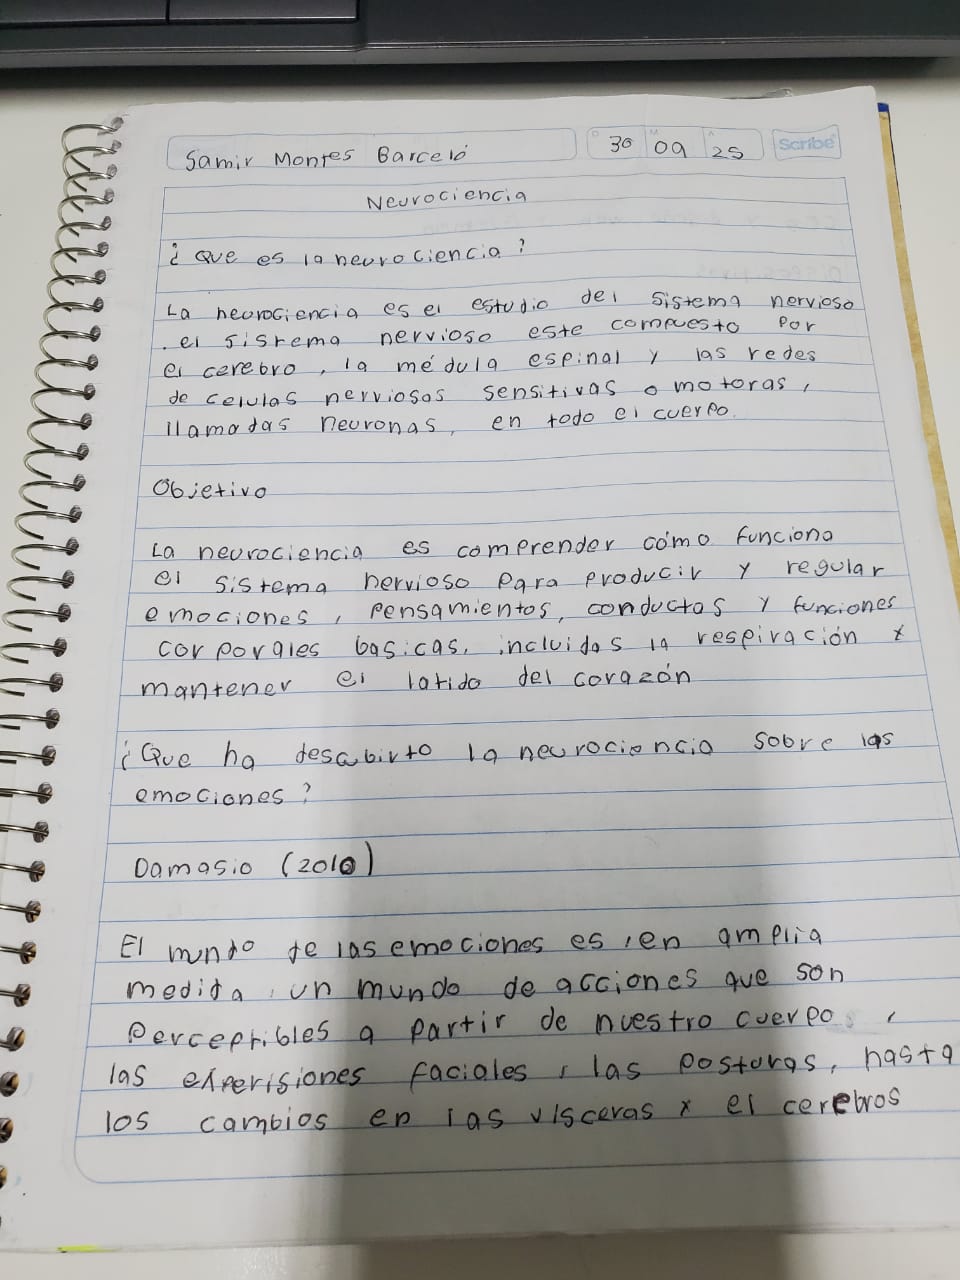 Samir Montes Barceló
D 30 M 09 A 25
Scribe
Neurociencia
¿Que es la neurociencia?
La neurociencia es el estudio del sistema nervioso
. el sistema nervioso este compuesto por
el cerebro, la médula espinal y las redes
de celulas nerviosas sensitivas o motoras,
llamadas neuronas, en todo el cuerpo.
Objetivo
La neurociencia es comprender cómo funciona
el sistema nervioso para producir y regular
emociones, pensamientos, conductas y funciones
corporales basicas, incluidas la respiración x
mantener el latido del corazón
¿Que ha descubirto la neurociencia sobre las
emociones?
Damasio (2010)
El mundo de las emociones es, en amplia
medida, un mundo de acciones que son
perceptibles a partir de nuestro cuerpo,
las experisiones faciales, las posturas, hasta
los cambios en las vísceras x el cerebros